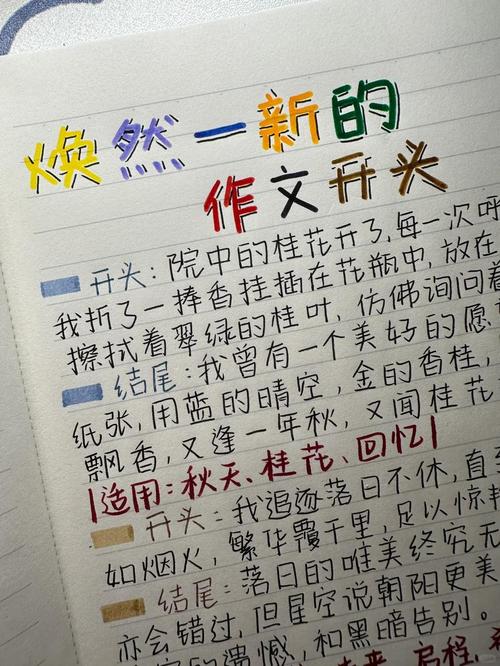 焕然一新的
作文开头
开头:院中的桂花开了,每一次呼
我折了一捧香挂插在花瓶中,放在
擦拭着翠绿的桂叶,仿佛询问着
结尾:我曾有一个美好的愿
纸张,用蓝的晴空,金的香桂,
飘香,又逢一年秋,又闻桂花
|适用:秋天、桂花、回忆|
开头:我追逐落日不休,直至
如烟火,繁华覆千里,足以惊
结尾:落日的唯美终究无
亦会错过,但星空说朝阳更美
的遗憾,和黑暗告别。
启程